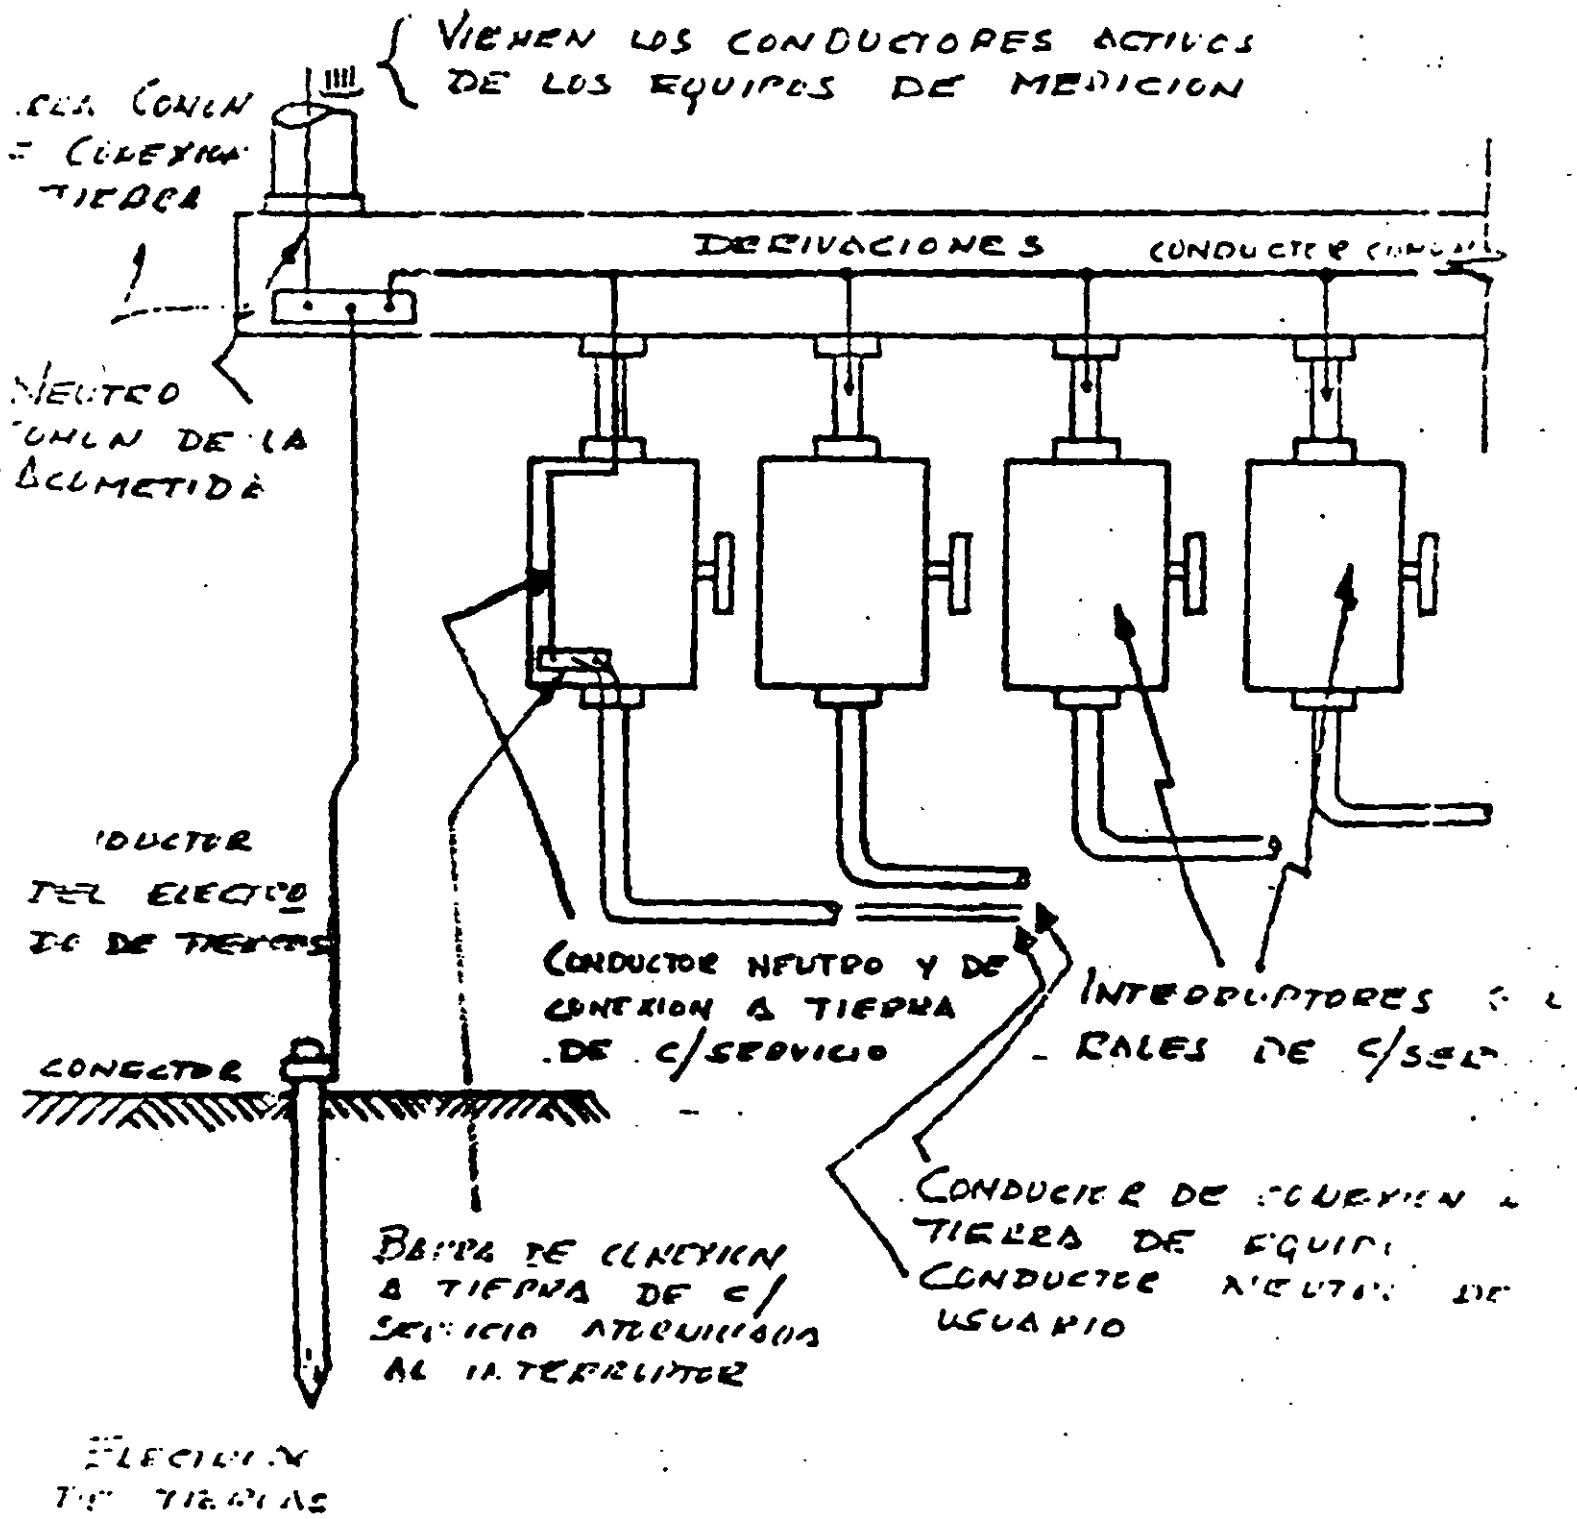 VIENEN LOS CONDUCTORES ACTIVOS
DE LOS EQUIPOS DE MEDICION
COMUN
CONEXION
TIERRA
DERIVACIONES
CONDUCTOR COMUN
NEUTRO
COMUN DE LA
ACOMETIDA
DUCTOR
DEL ELECTRO
DO DE TIERRAS
CONECTOR
CONDUCTOR NEUTRO Y DE
CONEXION A TIERRA
DE C/SERVICIO
INTERRUPTORES
RALES DE C/SER
CONDUCTOR DE CONEXION A
TIERRA DE EQUIPO
CONDUCTOR NEUTRO DE
USUARIO
BARRA DE CONEXION
A TIERRA DE C/
SERVICIO ATORNILLADA
AL INTERRUPTOR
ELECTRODO
DE TIERRAS